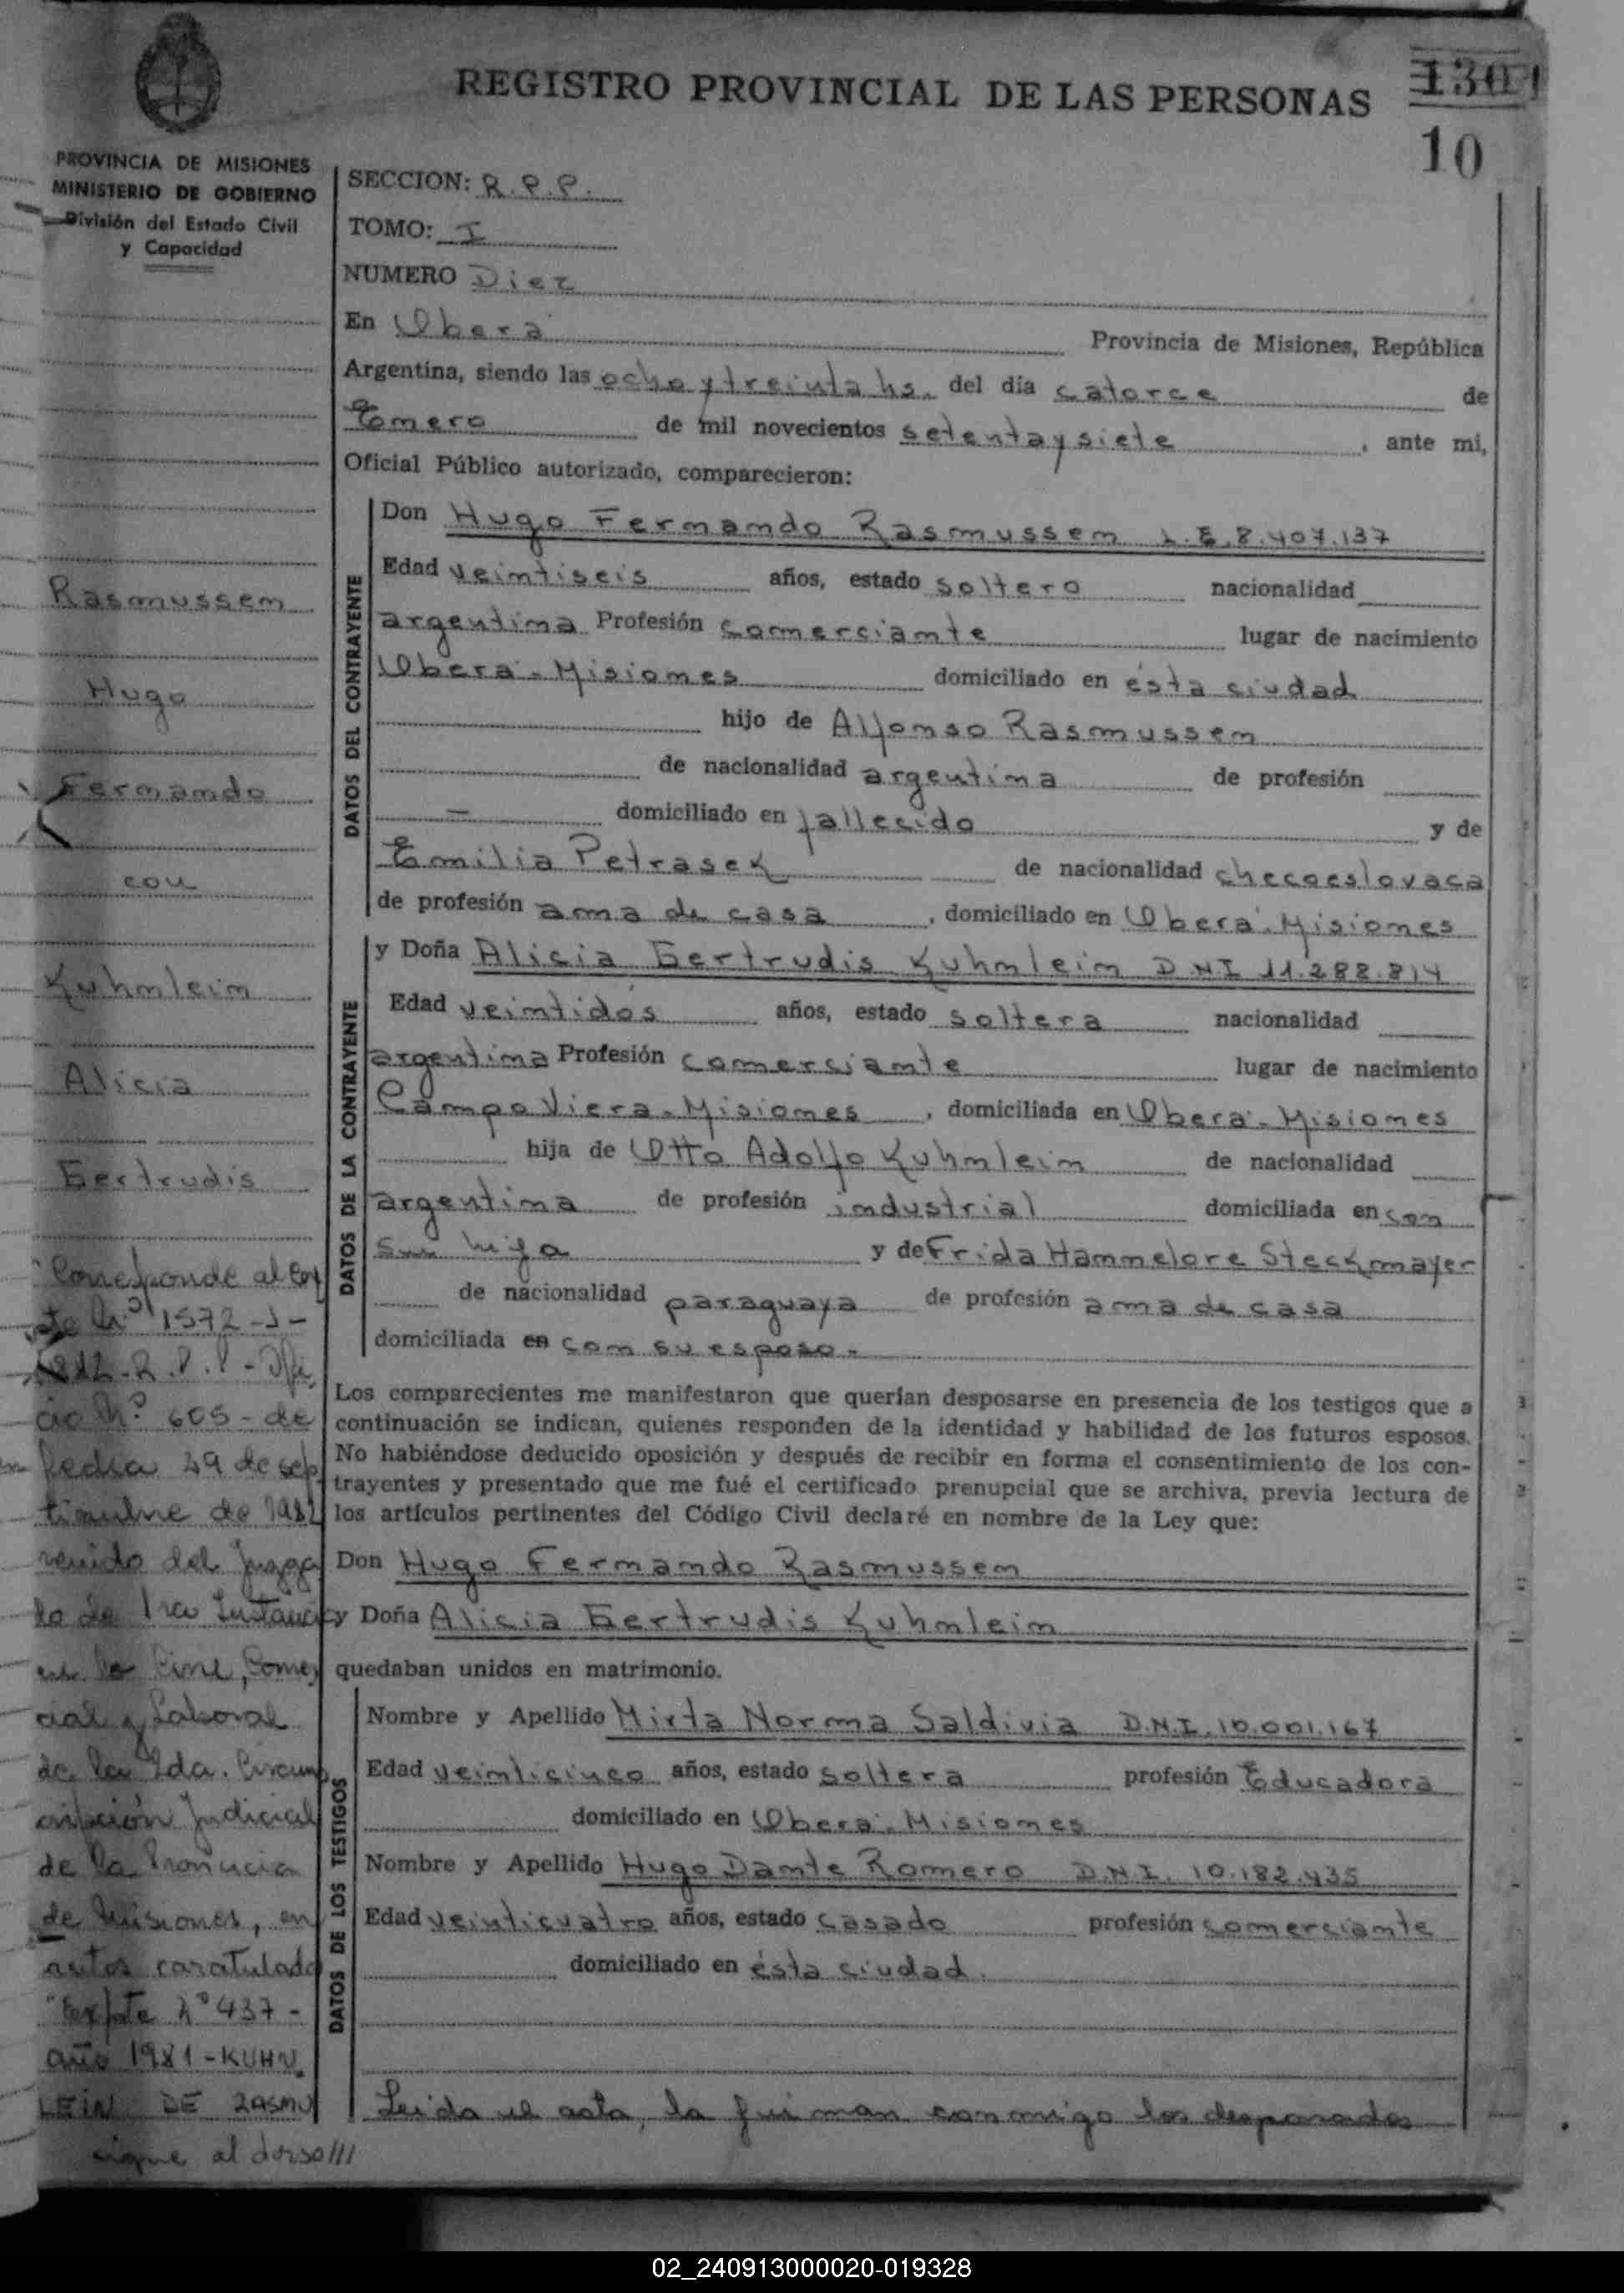 REGISTRO PROVINCIAL DE LAS PERSONAS
10
PROVINCIA DE MISIONES
MINISTERIO DE GOBIERNO
División del Estado Civil
y Capacidad
SECCION: R.P.P.
TOMO: I
NUMERO Diez
En Oberá Provincia de Misiones, República
Argentina, siendo las ocho y treinta hs. del día catorce de
Enero de mil novecientos setenta y siete, ante mi,
Oficial Público autorizado, comparecieron:
DATOS DEL CONTRAYENTE
Don Hugo Fernando Rasmussen L.E. 8.407.137
Edad veintiseis años, estado soltero nacionalidad
argentina Profesión comerciante lugar de nacimiento
Oberá - Misiones domiciliado en ésta ciudad
hijo de Alfonso Rasmussen
de nacionalidad argentina de profesión
— domiciliado en fallecido y de
Emilia Petrasek de nacionalidad checoeslovaca
de profesión ama de casa, domiciliado en Oberá - Misiones
DATOS DE LA CONTRAYENTE
y Doña Alicia Gertrudis Kuhnlein D.N.I 11.288.814
Edad veintidos años, estado soltera nacionalidad
argentina Profesión comerciante lugar de nacimiento
Campo Viera - Misiones, domiciliada en Oberá - Misiones
hija de Otto Adolfo Kuhnlein de nacionalidad
argentina de profesión industrial domiciliada en con
su hija y de Frida Hannelore Steckmayer
de nacionalidad paraguaya de profesión ama de casa
domiciliada en con su esposo.-
Los comparecientes me manifestaron que querían desposarse en presencia de los testigos que a
continuación se indican, quienes responden de la identidad y habilidad de los futuros esposos.
No habiéndose deducido oposición y después de recibir en forma el consentimiento de los con-
trayentes y presentado que me fué el certificado prenupcial que se archiva, previa lectura de
los artículos pertinentes del Código Civil declaré en nombre de la Ley que:
Don Hugo Fernando Rasmussen
y Doña Alicia Gertrudis Kuhnlein
quedaban unidos en matrimonio.
DATOS DE LOS TESTIGOS
Nombre y Apellido Mirta Norma Saldivia D.N.I. 10.001.167
Edad veinticinco años, estado soltera profesión Educadora
domiciliado en Oberá - Misiones
Nombre y Apellido Hugo Dante Romero D.N.I. 10.182.435
Edad veinticuatro años, estado casado profesión comerciante
domiciliado en ésta ciudad.
Leida el acta, la firman conmigo los desposados
Rasmussen
Hugo
Fernando
con
Kuhnlein
Alicia
Gertrudis
Corresponde al Exp
te Nº 1572-J-
R.P.P - Ofi
cio Nº 605 - de
fecha 29 de sep
tiembre de 1982
venido del Juzga
do de 1ra Instancia
en lo Civil, Comer
cial y Laboral
de la 2da. Circuns
cripción Judicial
de la Provincia
de Misiones, en
autos caratulado
"Expte Nº 437-
año 1981 - KUHN
LEIN DE RASMU
sigue al dorso///
02_240913000020-019328